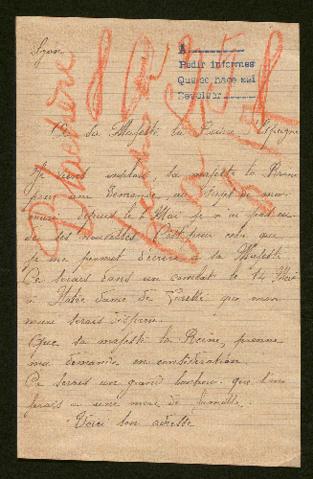 Lyon
A
Pedir informes
Que se hace así
Devolver
A sa Majesté la Reine d'Espagne
Je viens sa majesté la Reine
pour une demande, au sujet de mon
depuis le 8 Mai je n ai point eu
de ses nouvelles C'est pour cela que
je me permet d'écrire à sa Majesté
Ce serais dans un combat le 14 Mai
à Notre Dame de Lorette que mon
serais disparu
Que sa majesté la Reine, prenne
ma demande en considération
Ce serais un grand bonheur que
ferais a une mère de famille.
Voici son adresse